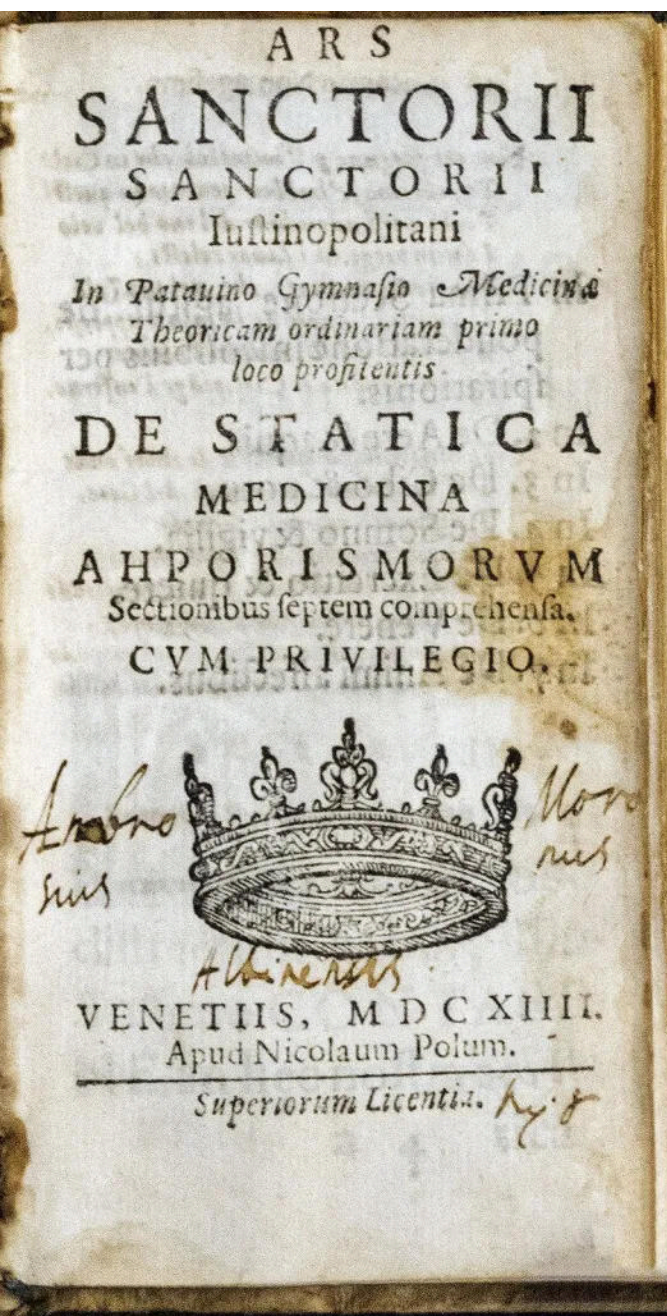 ARS
SANCTORII
SANCTORII
Iuſtinopolitani
In Patauino Gymnaſio Medicinæ
Theoricam ordinariam primo
loco profitentis
DE STATICA
MEDICINA
AHPORISMORVM
Sectionibus ſeptem comprehenſa.
CVM PRIVILEGIO.
Ambro
sius
Moro
nus
Albinensis
VENETIIS, MDCXIIII.
Apud Nicolaum Polum.
Superiorum Licentia.